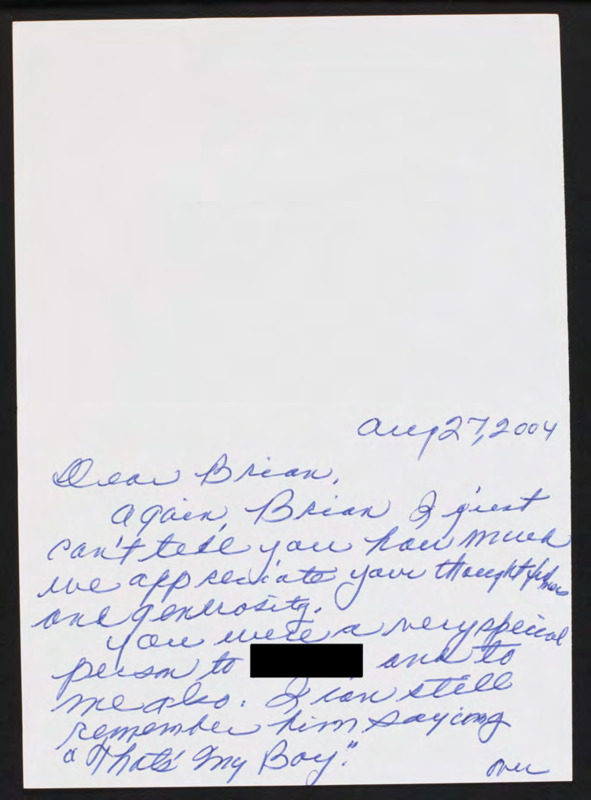 Aug 27, 2004
Dear Brian,
Again, Brian I just
can't tell you how much
we appreciate your thoughtfulness
and generosity.
You were a very special
person to and to
me also. I can still
remember him saying
"That's My Boy."
over